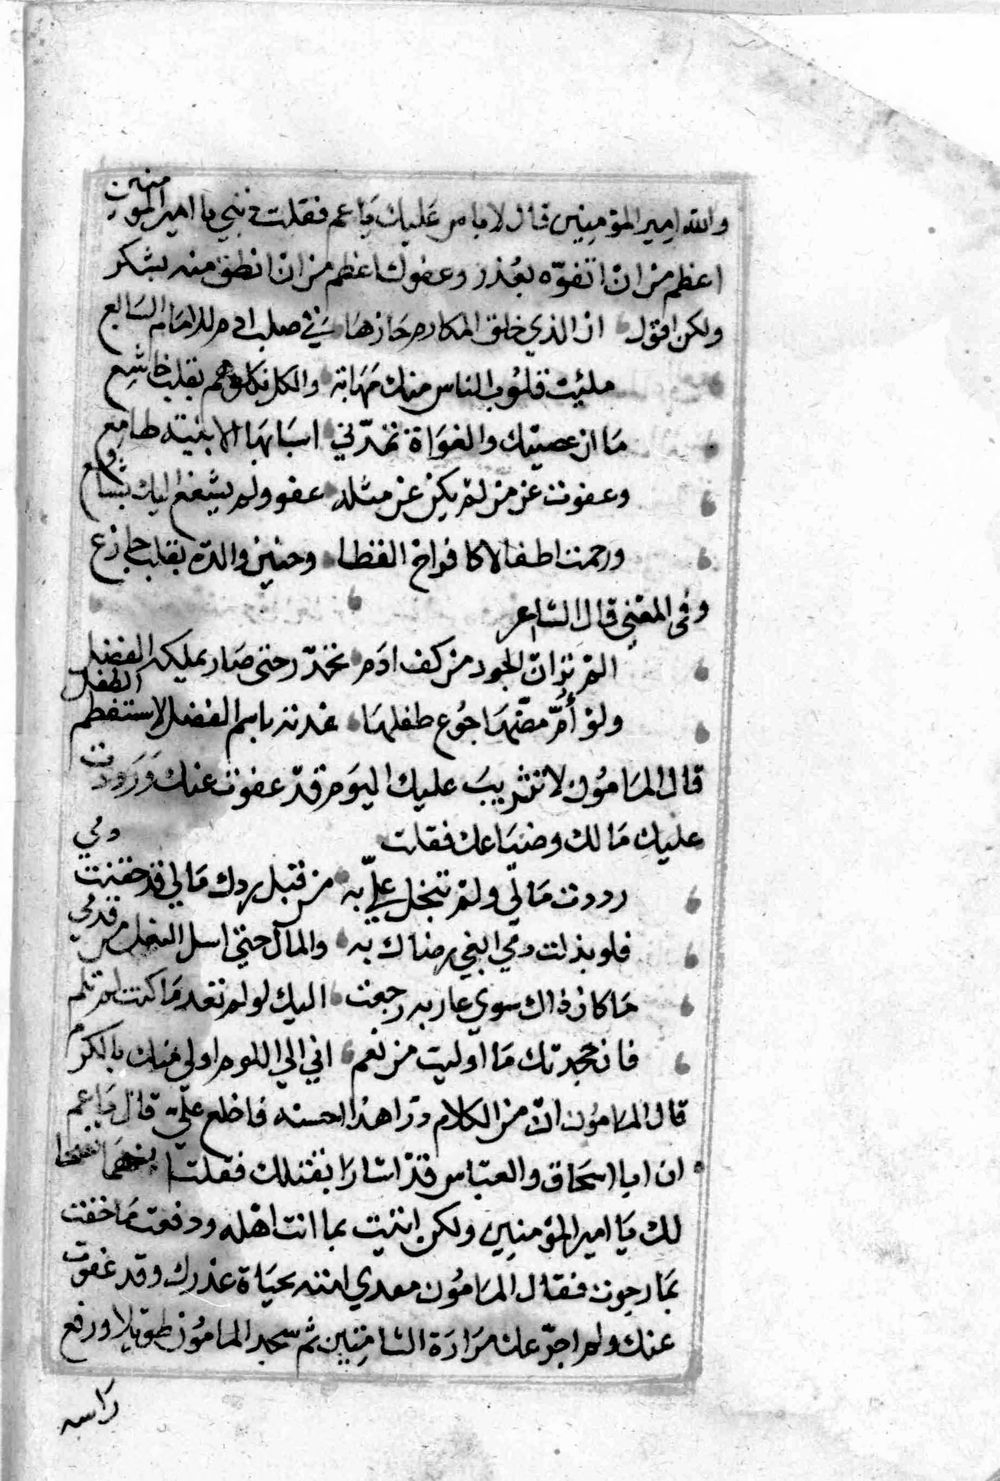 والله امير المؤمنين قال لا باس عليك يا عم فقلت ذنبي يا امير المؤمنين
اعظم من ان اتفوه بعذر وعفوك اعظم من ان انطق منه بشكر
ولكن اقول ان الذي خلق المكارم حازها في صلب ادم للامام السابع
ملئت قلوب الناس منك مهابة والكل تكلوهم بقلب خاشع
ما ان عصيتك والغواة تمدني اسبابها الا بنية طامع
وعفوت عن من لم يكن عن مثله عفو ولم يشفع اليك بشافع
ورحمت اطفالا كافراخ القطا وحنين والدة بقلب جازع
وفي المعنى قال الشاعر
الم تر ان الجود من كف ادم تحدر حتى صار يملكه الفضل
ولو أُمٌّ مصّها جوع طفلها غدته باسم الفضل لاستفطم الطفل
قال المامون لا تثريب عليك اليوم قد عفوت عنك ورددت
عليك مالك وضياعك فقلت
رددت مالي ولم تبخل علي به من قبل ردك مالي قد حقنت دمي
فلو بذلت دمي ابغي رضاك به والمال حتى اسل النعل من قدمي
ما كان ذاك سوى عارية رجعت اليك لو لم تعد ما كنت لم تلم
فان جحدتك ما اوليت من نعم اني الى اللوم اولى منك بالكرم
قال المامون ان من الكلام درا هذا احسنه فاخلع عليّ قال يا عم
ان ابا اسحاق والعباس قد اشارا بقتلك فقلت انهما نصحا
لك يا امير المؤمنين ولكن اتيت بما انت اهله ودفعت ما خفت
بما رجوت فقال المامون معدي امته بحياة عذرك وقد عفوت
عنك ولم اجرعك مرارة الشامتين ثم سجد المامون طويلا ورفع
راسه